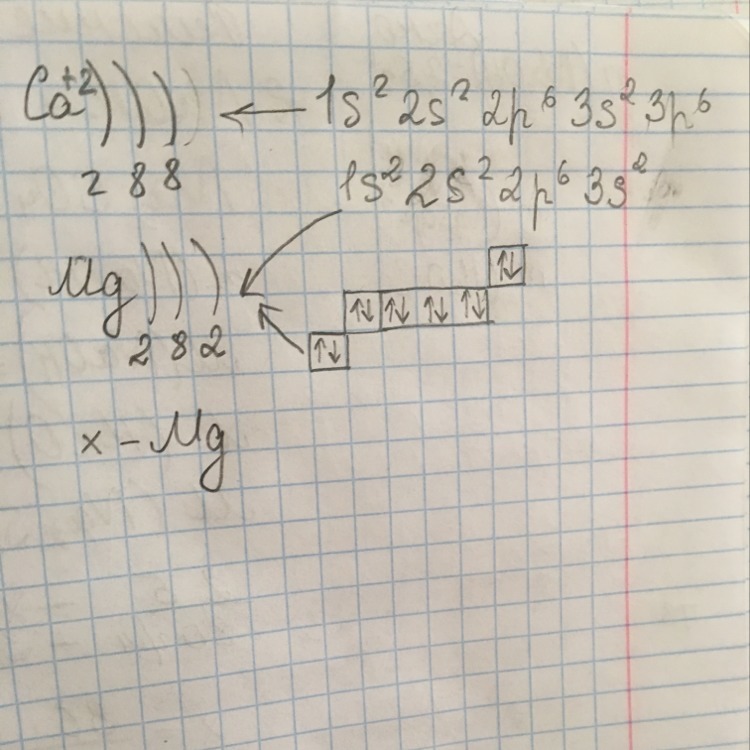 Ca⁺² ) ) ) ← 1s² 2s² 2p⁶ 3s² 3p⁶
2 8 8
1s² 2s² 2p⁶ 3s²
Mg ) ) )
2 8 2
↑↓
↑↓ ↑↓ ↑↓ ↑↓
↑↓
x – Mg